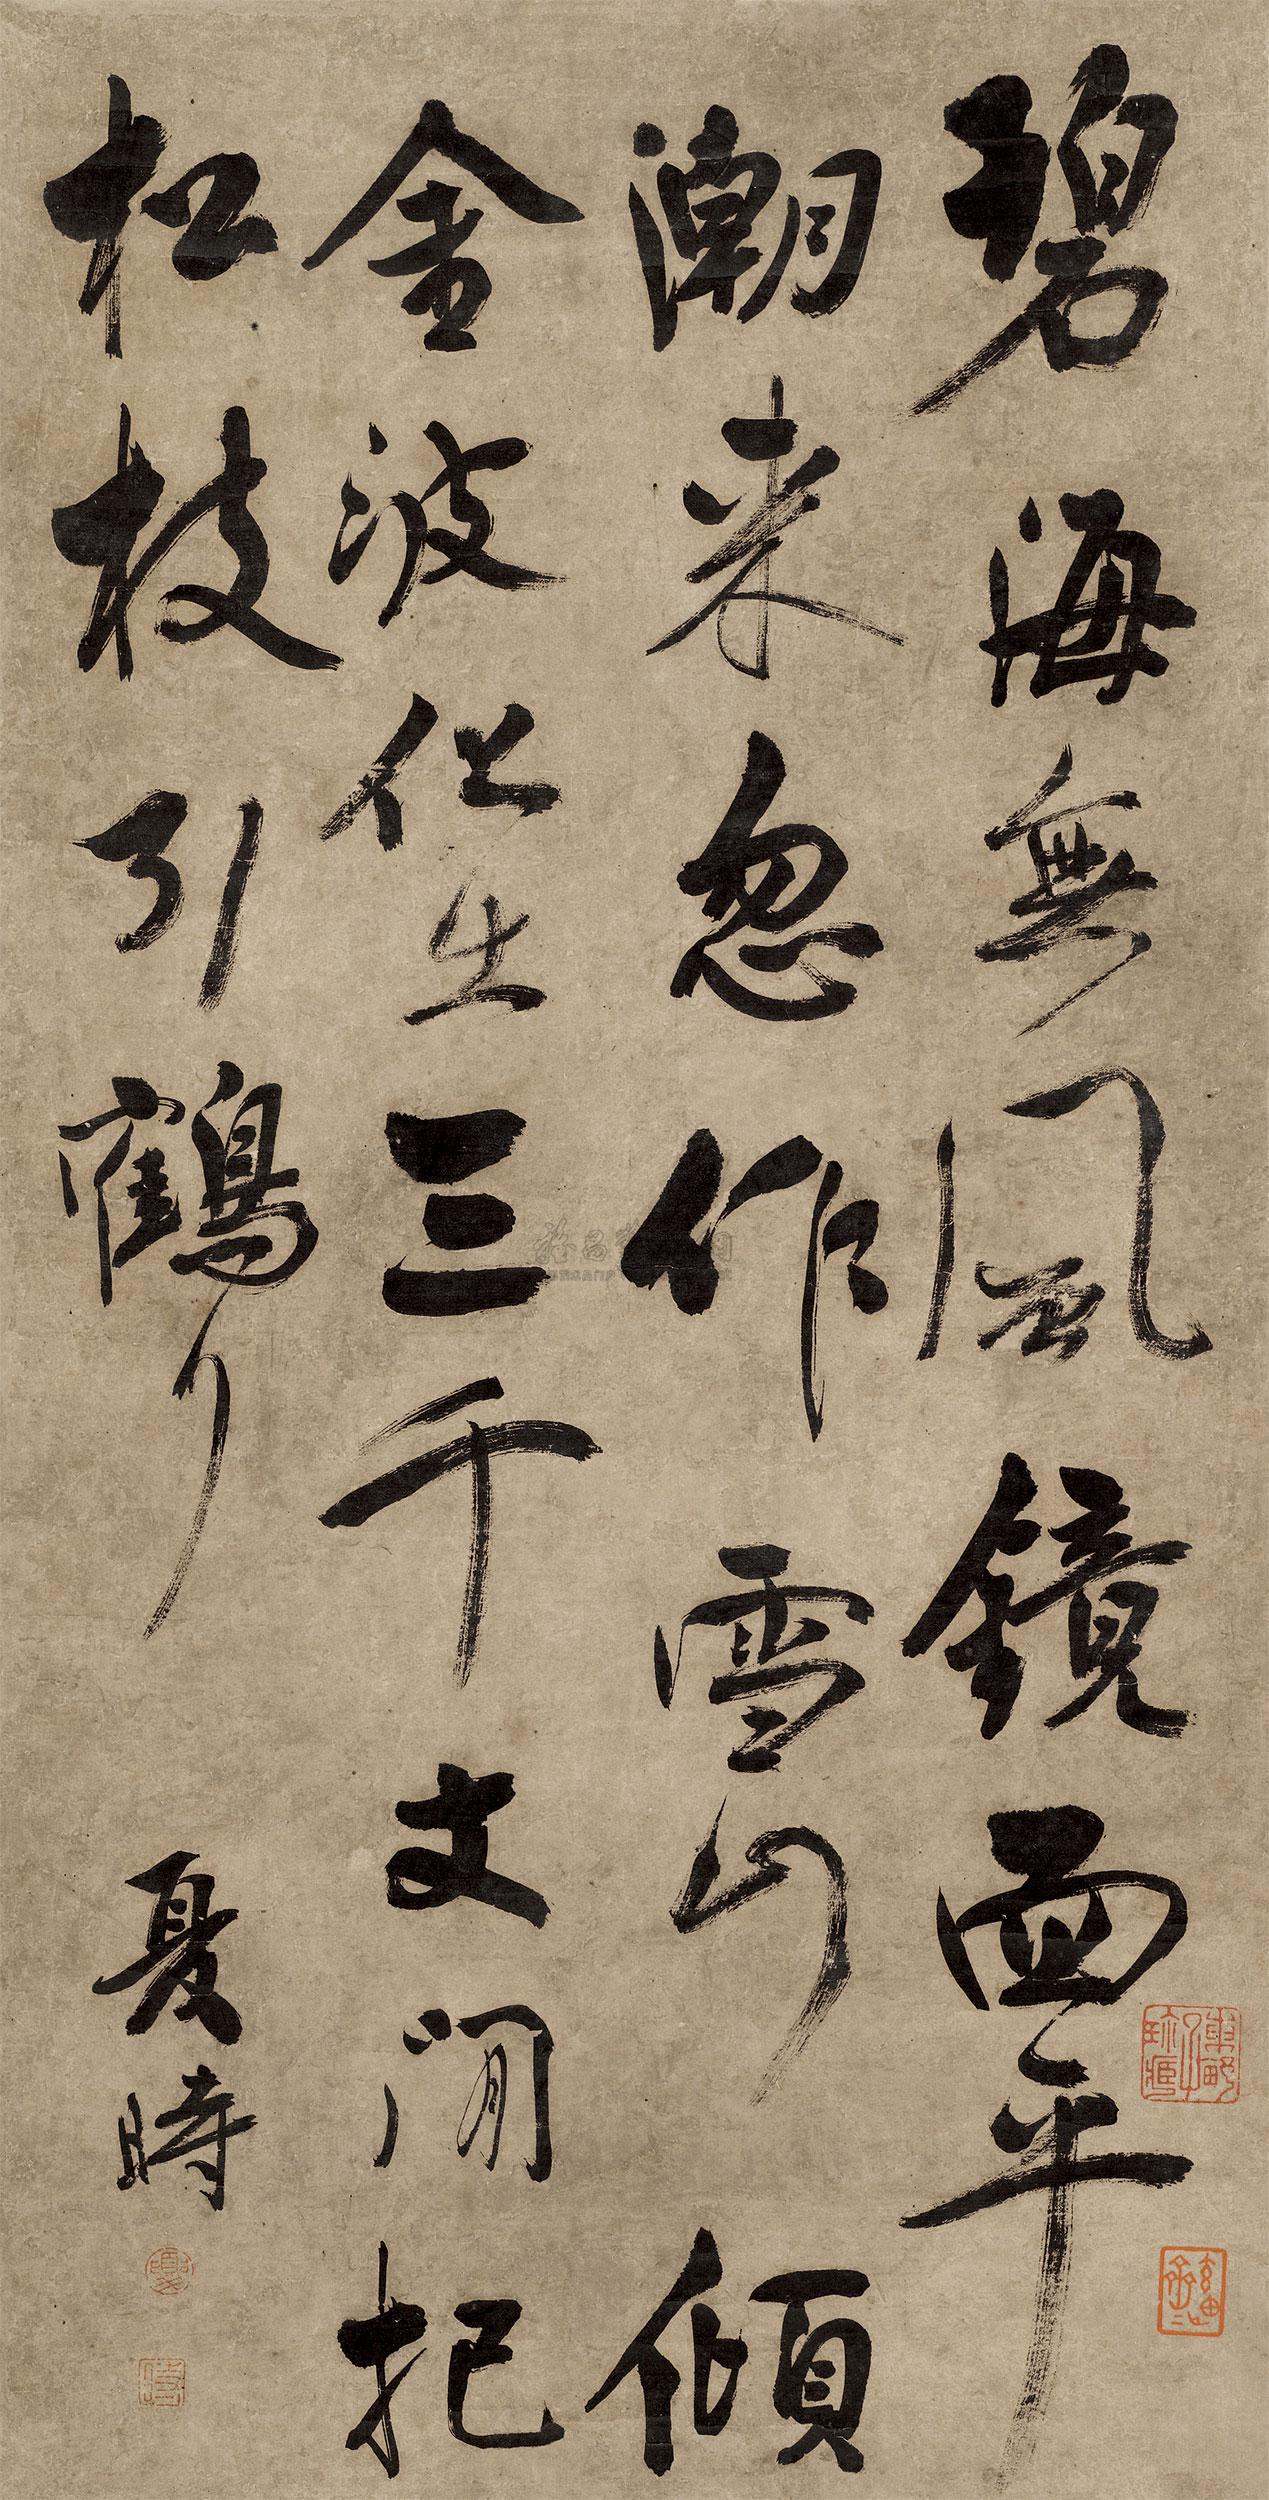 碧海無風鏡面平
潮来忽作雪山傾
金波化生三千丈閒把
松枝引鶴行
夏時